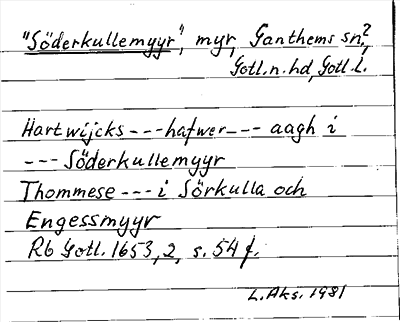 "Söderkullemyyr", myr, Ganthems sn?,
Gotl.n.hd, Gotl.l.
Hartwijcks---hafwer--- aagh i
---Söderkullemyyr
Thommese---i Sörkulla och
Engessmyyr
Rb Gotl. 1653, 2, s. 54 f.
L. Aks. 1981